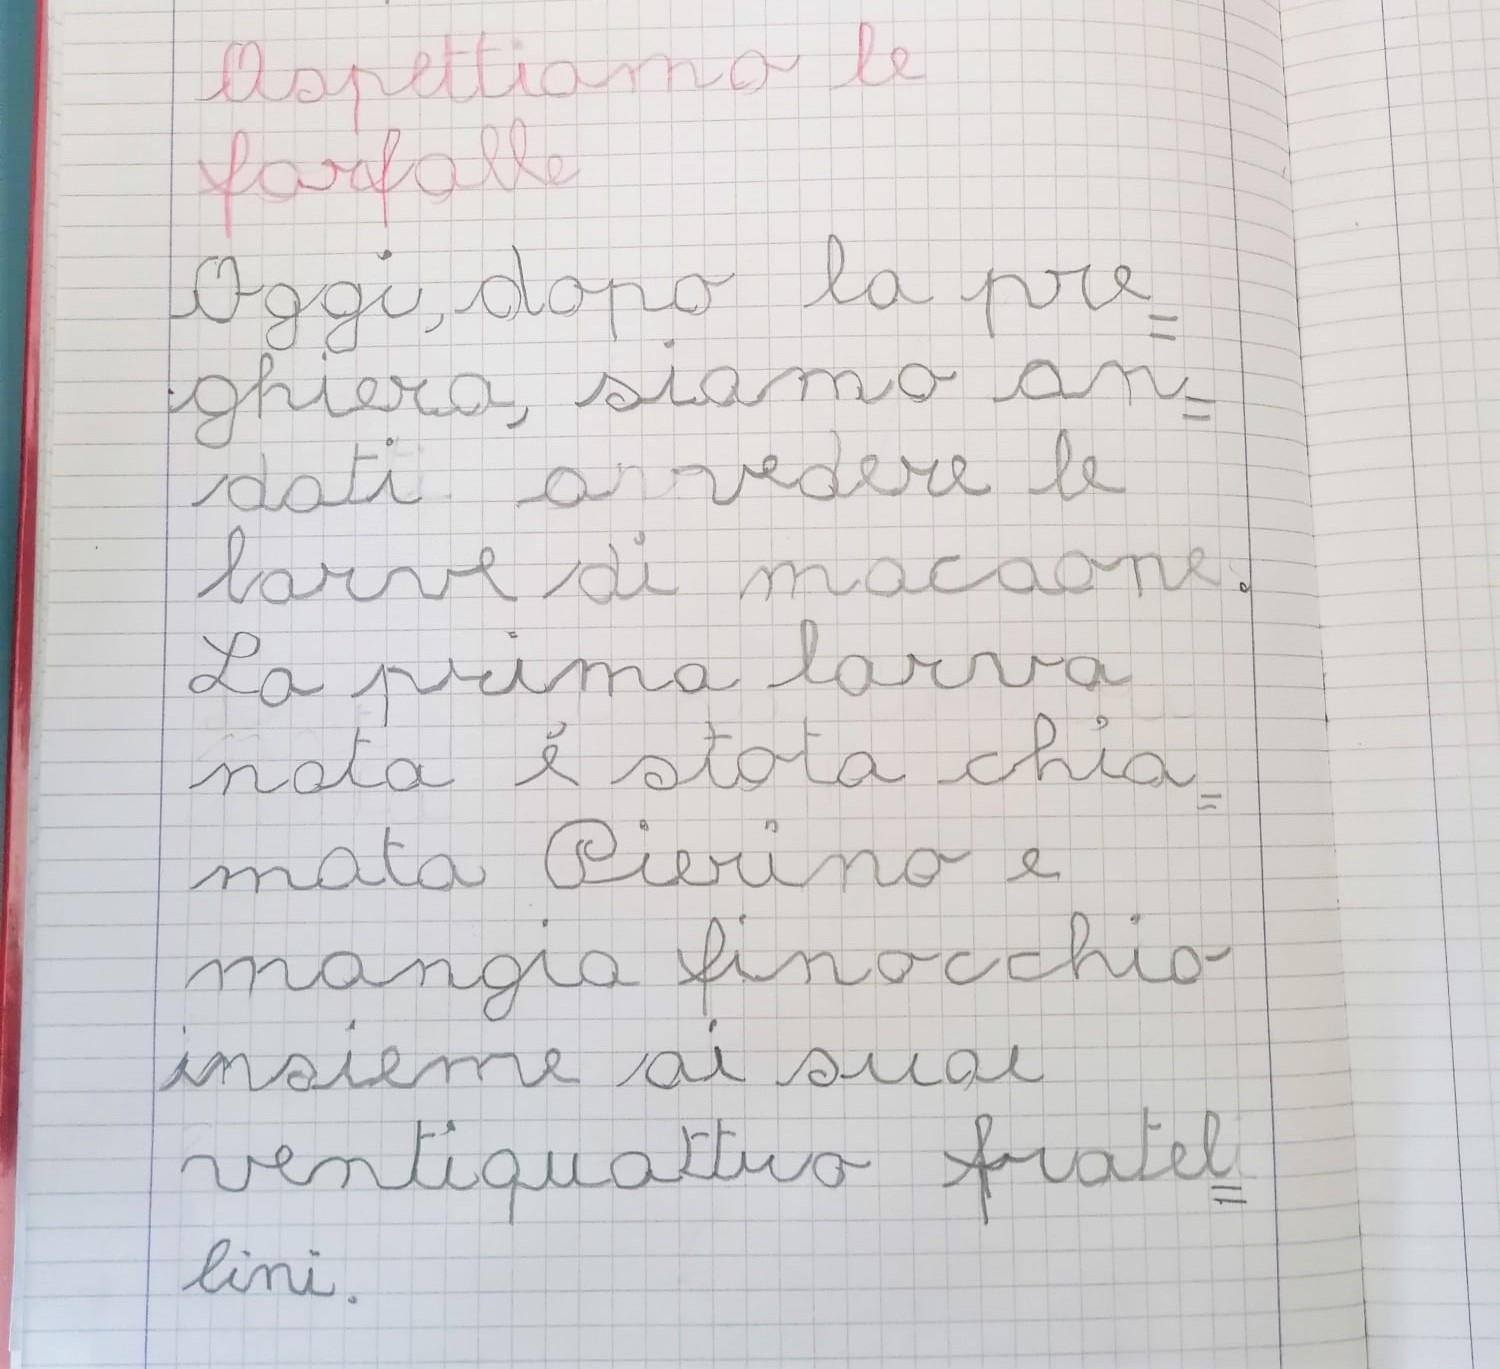 Aspettiamo le
farfalle
Oggi, dopo la pre=
ghiera, siamo an=
dati a vedere le
larve di macaone.
La prima larva
nata è stata chia=
mata Pierino e
mangia finocchio
insieme ai suoi
ventiquattro fratel=
lini.